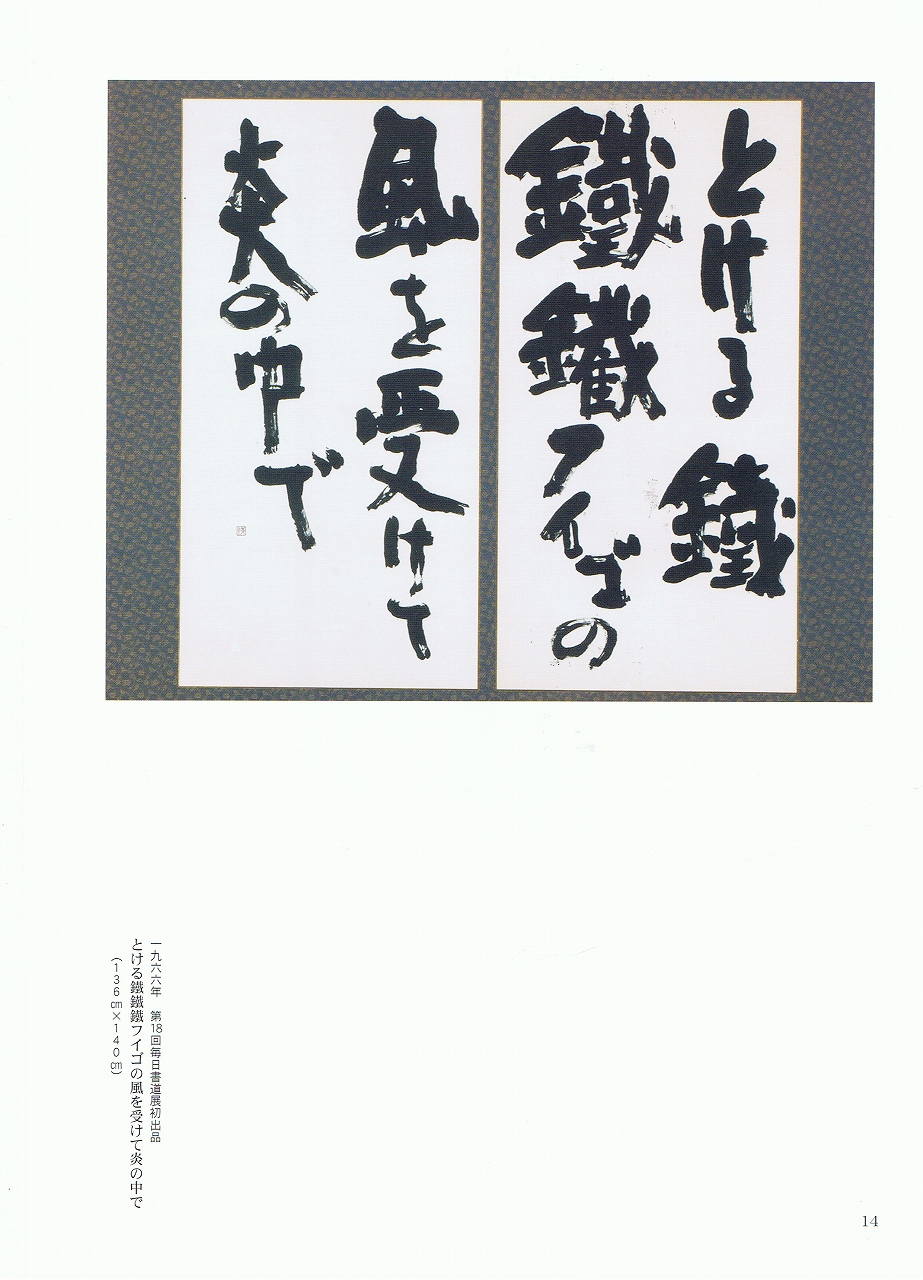 とける鐵
鐵鐵フイゴの
風を受けて
炎の中で
一九六六年　第18回毎日書道展初出品
とける鐵鐵鐵フイゴの風を受けて炎の中で
（136㎝×140㎝）
14